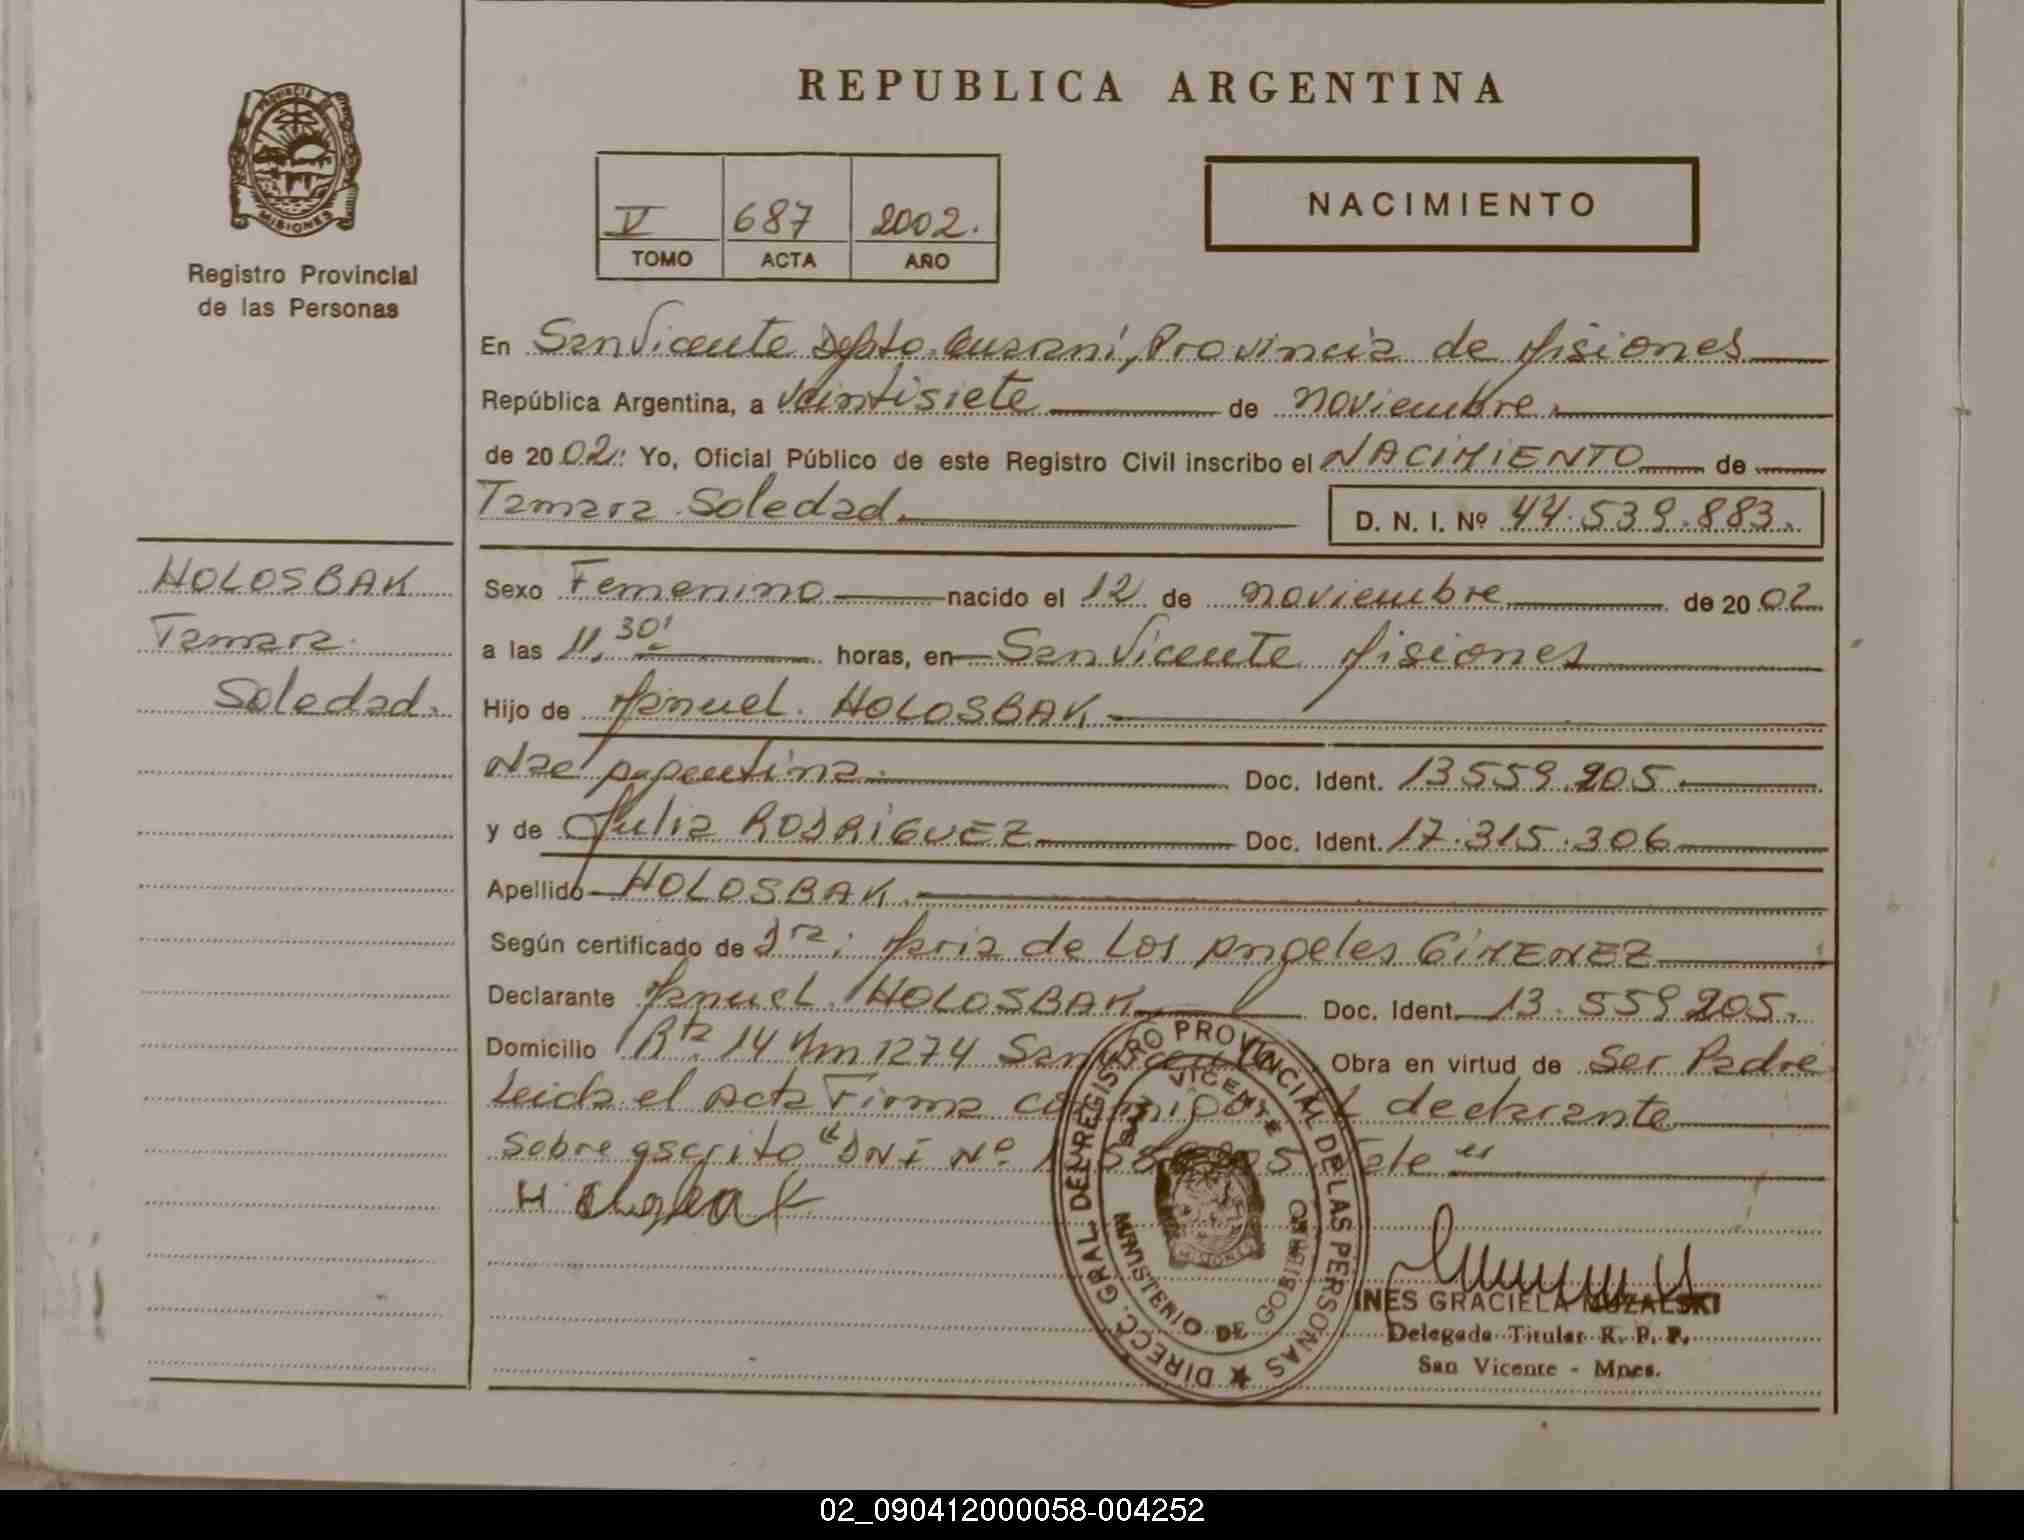 REPUBLICA ARGENTINA
PROVINCIA DE
MISIONES
Registro Provincial
de las Personas
V 687 2002.
TOMO ACTA AÑO
NACIMIENTO
En San Vicente Depto. Guaraní, Provincia de Misiones
República Argentina, a veintisiete de noviembre
de 2002: Yo, Oficial Público de este Registro Civil inscribo el NACIMIENTO de
Tamara Soledad. D. N. I. Nº 44.539.883.
HOLOSBAK
Tamara
Soledad.
Sexo Femenino nacido el 12 de noviembre de 2002
a las 11,30' horas, en San Vicente Misiones
Hijo de Manuel HOLOSBAK
Nac Argentina Doc. Ident. 13.559.205
y de Julia RODRIGUEZ Doc. Ident. 17.315.306
Apellido HOLOSBAK
Según certificado de Dra: Maria de Los Angeles GIMENEZ
Declarante Manuel HOLOSBAK Doc. Ident. 13.559.205.
Domicilio Rta. 14 Km 1274 San Vicente Obra en virtud de Ser Padre
Leida el Acta Firma conmigo el declarante
Sobre escrito "DNI Nº Vale"
DIRECC. GRAL. DEL REGISTRO PROVINCIAL DE LAS PERSONAS
SAN VICENTE
MINISTERIO DE GOBIERNO
INES GRACIELA MUZALSKI
Delegada Titular R. P. P.
San Vicente - Mnes.
02_090412000058-004252